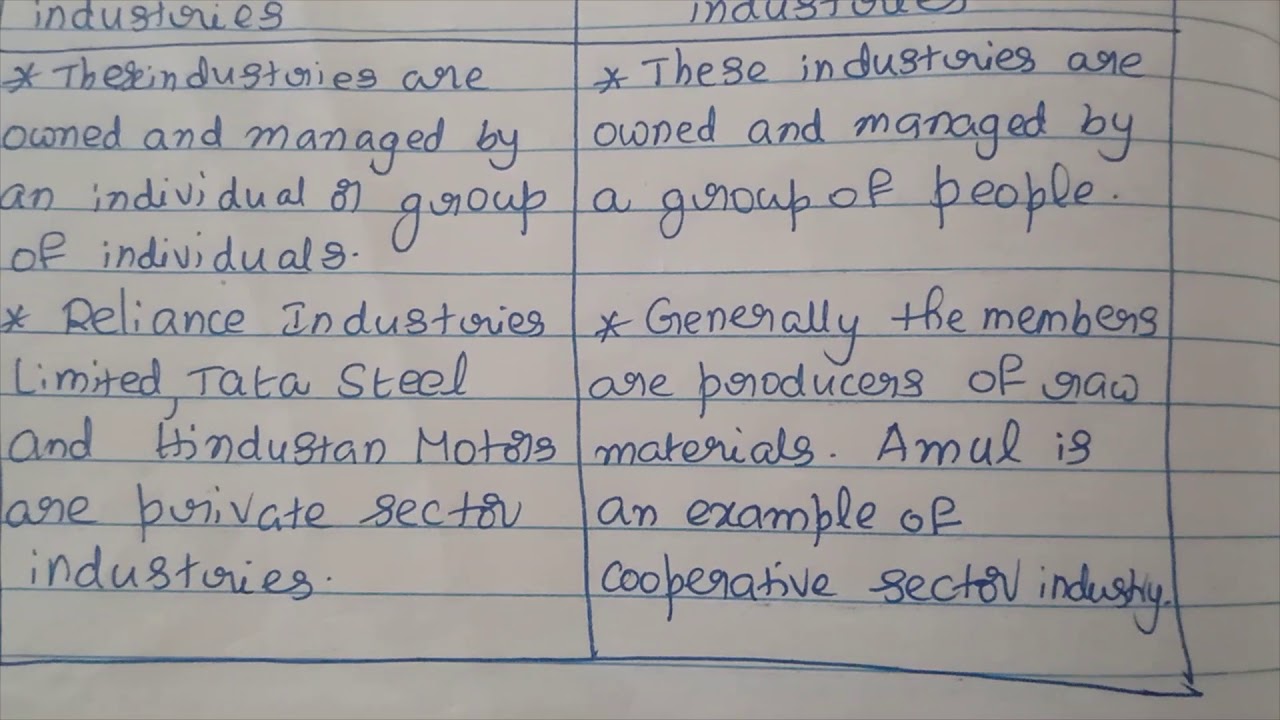 industries
* These industries are
owned and managed by
an individual or group
of individuals.
* Reliance Industries
Limited, Tata Steel
and Hindustan Motors
are private sector
industries.
industries
* These industries are
owned and managed by
a group of people.
* Generally the members
are producers of raw
materials. Amul is
an example of
cooperative sector industry.